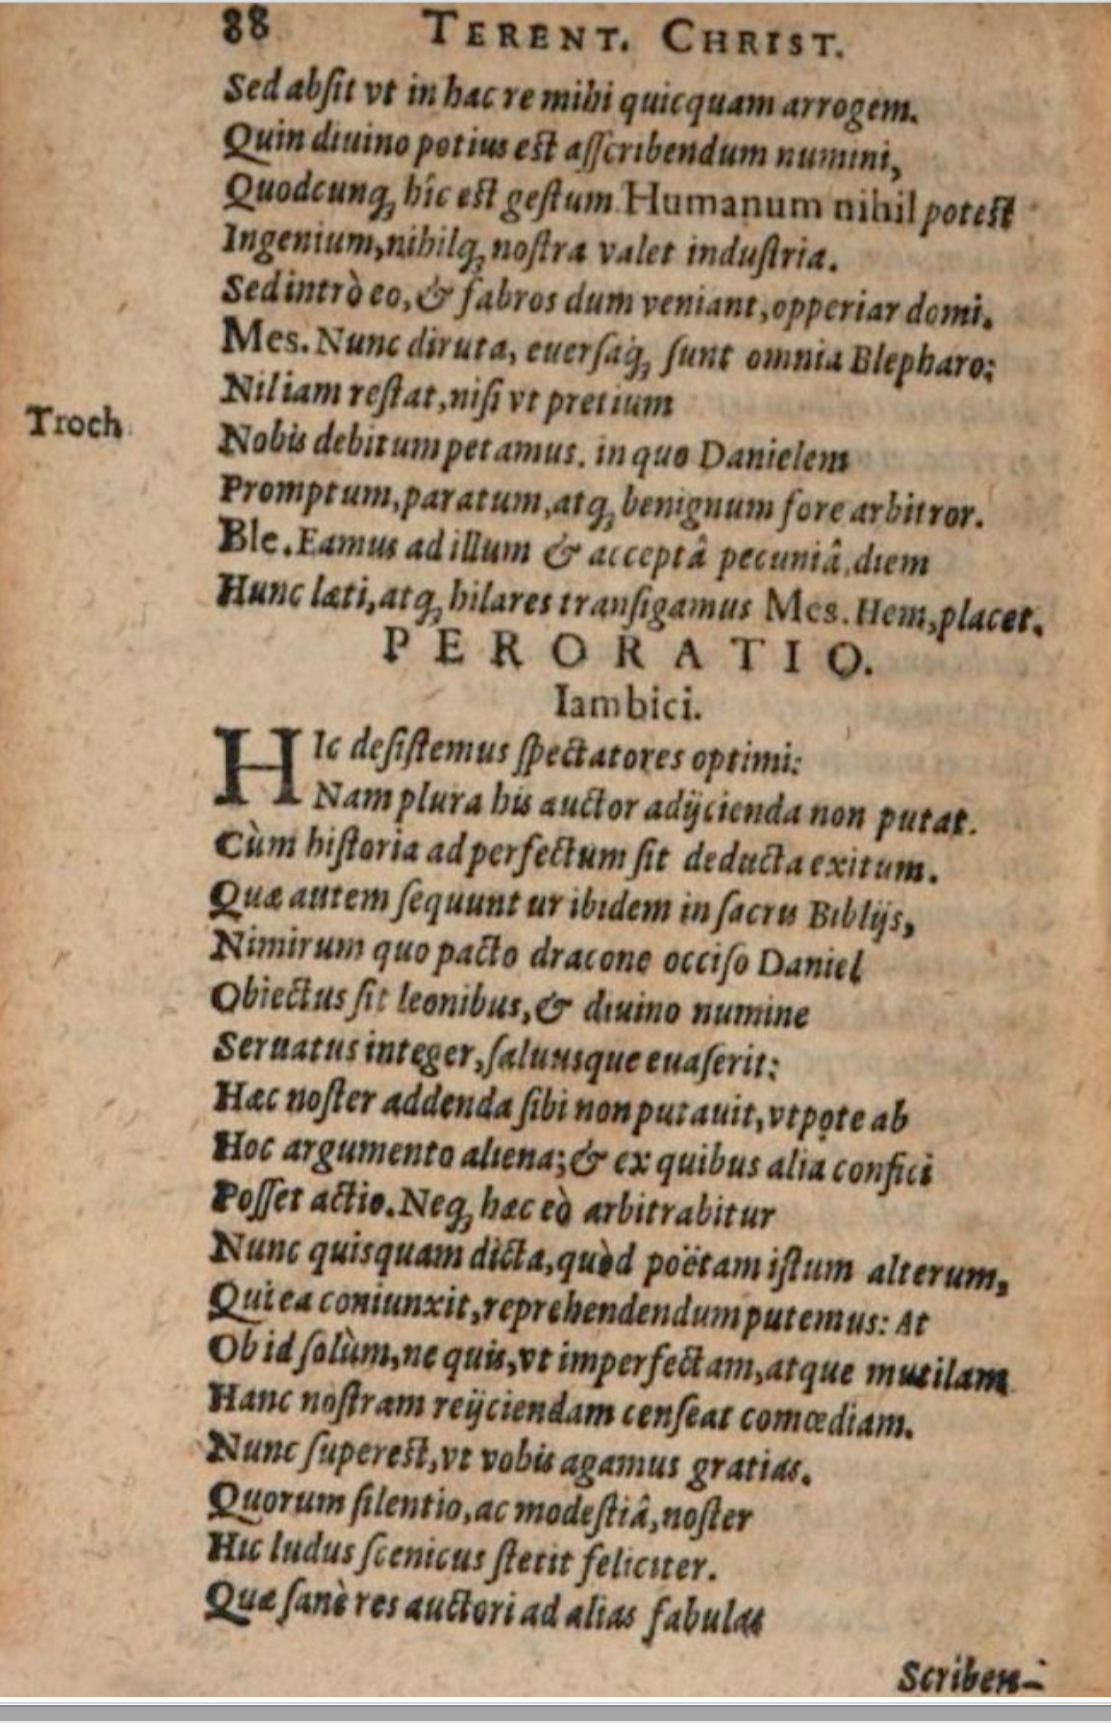 88 TERENT. CHRIST.
Sed absit vt in hac re mihi quicquam arrogem.
Quin diuino potius est asscribendum numini,
Quodcunq; hîc est gestum Humanum nihil potest
Ingenium, nihilq; nostra valet industria.
Sed intrò eo, & fabros dum veniant, opperiar domi.
Mes. Nunc diruta, euersaq; sunt omnia Blepharo:
Nil iam restat, nisi vt pretium
Troch
Nobis debitum petamus. in quo Danielem
Promptum, paratum, atq; benignum fore arbitror.
Ble. Eamus ad illum & acceptâ pecuniâ, diem
Hunc læti, atq; hilares transigamus Mes. Hem, placet.
PERORATIO.
Iambici.
HIc desistemus spectatores optimi:
Nam plura his auctor adijcienda non putat.
Cùm historia ad perfectum sit deducta exitum.
Quæ autem sequuntur ibidem in sacris Biblijs,
Nimirum quo pacto dracone occiso Daniel
Obiectus sit leonibus, & diuino numine
Seruatus integer, saluusque euaserit:
Hæc noster addenda sibi non putauit, vtpote ab
Hoc argumento aliena; & ex quibus alia confici
Posset actio. Neq; hæc eò arbitrabitur
Nunc quisquam dicta, quòd poëtam istum alterum,
Qui ea coniunxit, reprehendendum putemus: At
Ob id solùm, ne quis, vt imperfectam, atque mutilam
Hanc nostram reijciendam censeat comœdiam.
Nunc superest, vt vobis agamus gratias.
Quorum silentio, ac modestiâ, noster
Hic ludus scenicus stetit feliciter.
Quæ sanè res auctori ad alias fabulas
Scriben-